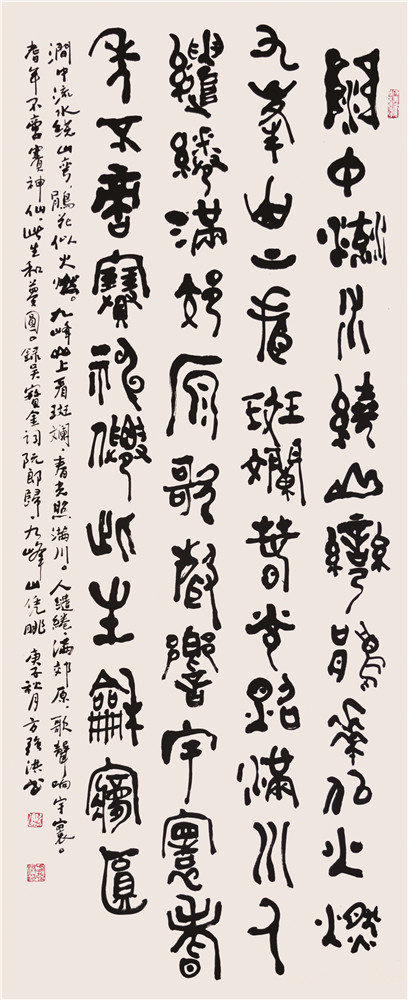 澗中流水繞山彎鵑花似火燃
九峯山上看斑斕春光照滿川人
繾綣滿郊原歌聲響宇寰耆
年不啻賽神僊此生龢寱圓
澗中流水绕山弯、鵑花似火燃。九峰山上看斑斕、春光照满川。人繾綣、满郊原、歌聲响宇寰。
耆年不啻賽神仙此生和夢圓。録吴寶金词阮郎歸、九峰山凭眺 庚子秋月 方 洪书